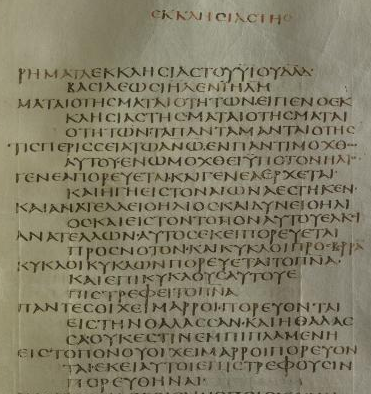 ΕΚΚΛΗΣΙΑΣΤΗΣ
ΡΗΜΑΤΑ ΕΚΚΛΗΣΙΑΣΤΟΥ ΥΙΟΥ ΔΑΔ
ΒΑΣΙΛΕΩΣ ΙΗΛ ΕΝ ΙΗΛΜ
ΜΑΤΑΙΟΤΗΣ ΜΑΤΑΙΟΤΗΤΩΝ ΕΙΠΕΝ Ο ΕΚ
ΚΛΗΣΙΑΣΤΗΣ ΜΑΤΑΙΟΤΗΣ ΜΑΤΑΙ
ΟΤΗΤΩΝ ΤΑ ΠΑΝΤΑ ΜΑΤΑΙΟΤΗΣ
ΤΙΣ ΠΕΡΙΣΣΕΙΑ ΤΩ ΑΝΩ ΕΝ ΠΑΝΤΙ ΜΟΧΘΩ
ΑΥΤΟΥ Ε Ω ΜΟΧΘΕΙ ΥΠΟ ΤΟΝ ΗΛΙ
ΓΕΝΕΑ ΠΟΡΕΥΕΤΑΙ ΚΑΙ ΓΕΝΕΑ ΕΡΧΕΤΑΙ
ΚΑΙ Η ΓΗ ΕΙΣ ΤΟΝ ΑΙΩΝΑ ΕΣΤΗΚΕΝ
ΚΑΙ ΑΝΑΤΕΛΛΕΙ Ο ΗΛΙΟΣ ΚΑΙ ΔΥΝΕΙ Ο ΗΛΙ
ΟΣ ΚΑΙ ΕΙΣ ΤΟΝ ΤΟΠΟΝ ΑΥΤΟΥ ΕΛΚΙ
ΑΝΑΤΕΛΛΩΝ ΑΥΤΟΣ ΕΚΕΙ ΠΟΡΕΥΕΤΑΙ
ΠΡΟΣ ΝΟΤΟΝ ΚΑΙ ΚΥΚΛΟΙ ΠΡΟΣ ΒΟΡΡΑ
ΚΥΚΛΟΙ ΚΥΚΛΩΝ ΠΟΡΕΥΕΤΑΙ ΤΟ ΠΝΑ
ΚΑΙ ΕΠΙ ΚΥΚΛΟΥΣ ΑΥΤΟΥ Ε
ΠΙΣΤΡΕΦΕΙ ΤΟ ΠΝΑ
ΠΑΝΤΕΣ ΟΙ ΧΕΙΜΑΡΡΟΙ ΠΟΡΕΥΟΝΤΑΙ
ΕΙΣ ΤΗΝ ΘΑΛΑΣΣΑΝ ΚΑΙ Η ΘΑΛΑΣ
ΣΑ ΟΥΚ ΕΣΤΙΝ ΕΜΠΙΠΛΑΜΕΝΗ
ΕΙΣ ΤΟΠΟΝ ΟΥ ΟΙ ΧΕΙΜΑΡΡΟΙ ΠΟΡΕΥΟΝ
ΤΑΙ ΕΚΕΙ ΑΥΤΟΙ ΕΠΙΣΤΡΕΦΟΥΣΙΝ
ΠΟΡΕΥΘΗΝΑΙ